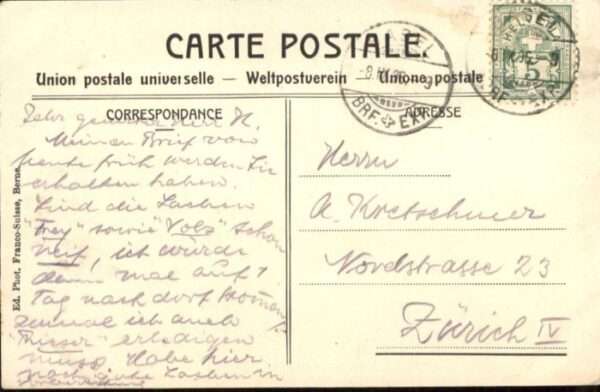 CARTE POSTALE.
Union postale universelle — Weltpostverein — Unione postale
CORRESPONDANCE
ADRESSE
BASEL
8.IX.06.-9
BRF. EXP.
5
Sehr geehrter Herr K.
Meinen Brief von
heute früh werden Sie
erhalten haben.
Sind die Sachen
"Frey" sowie "Volz" schon
reif, ich würde
dann mal auf 1
Tag nach dort kommen,
zumal ich auch
"Rieser" erledigen
muss. Habe hier
noch Sachen in
Herrn
A. Kretschmer
Nordstrasse 23
Zürich IV
Ed. Phot. Franco-Suisse, Berne.